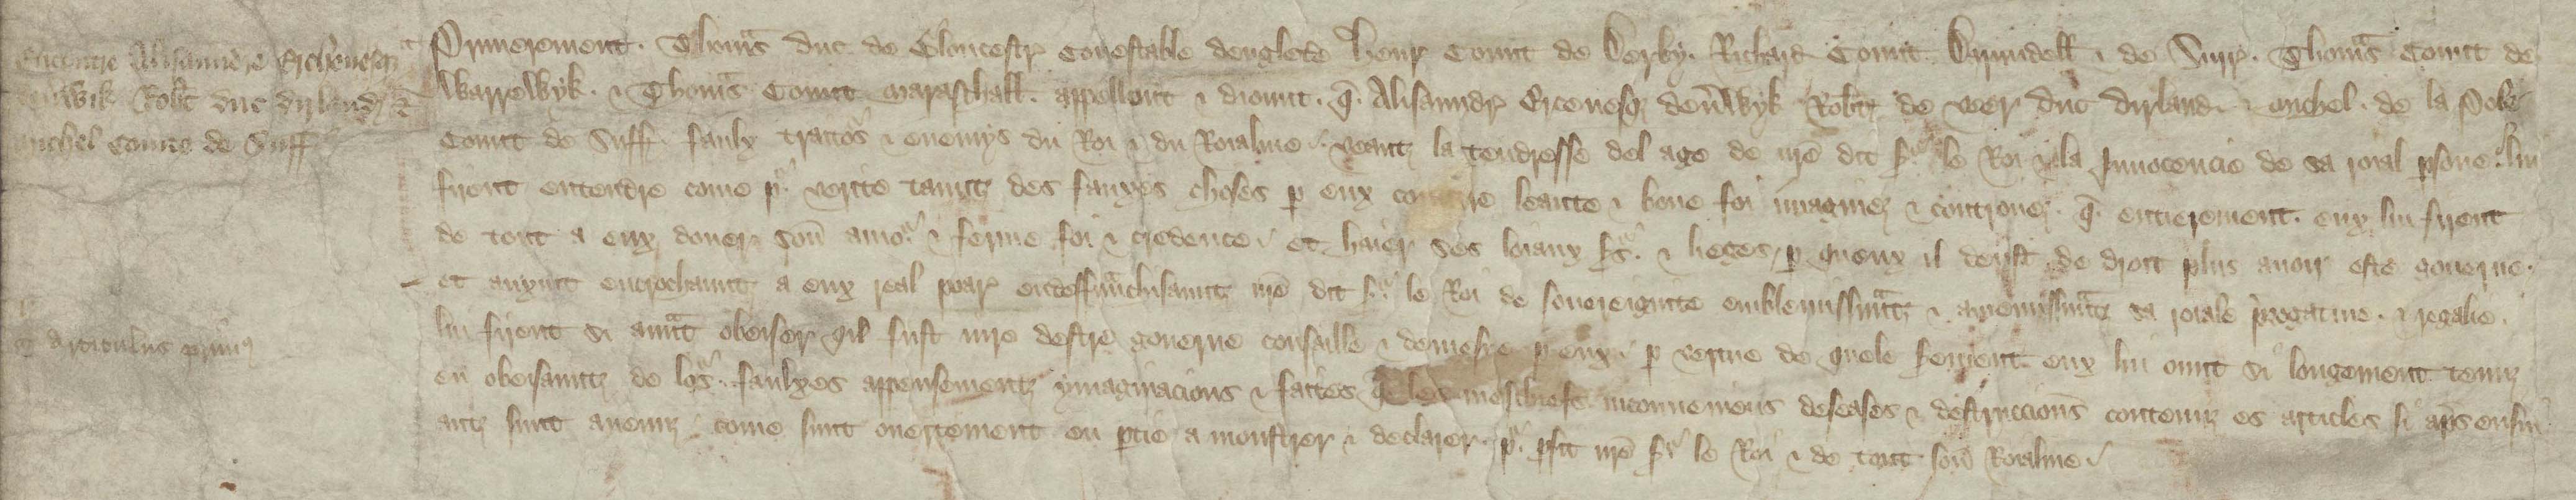 Encontre Alisaundre Ercheuesqe
deuwik Robt duc dirland &
michel Comte de Suff
articulus primus
Primerement. Thoms duc de Gloucestr Conestable dengletre Henr Comt de Derby. Richard Comt Darundell & de Surr. Thoms Comt de
Warrewyk. & Thoms Comt mareschall. appellont & diount. q Alisaundr Erceuesqe deuerwyk Robt de veer duc dirland. & michel. de la Pole
Comt de Suff. faulx traitors & enemys du Roi & du Roialme. veantz la tendresse del age de nre dit sr le Roi & la Innocencie de sa roial psone. lui
firent entendre come pr verite tauntz des fauxes choses p eux contre leaute & bone foi ymaginez & controuez. q entierement. eux lui firent
de tout a eux doner soun amor & ferme foi & credence. et haier ses loiaux srs. & lieges, p queux il deust de droit plus auoir este gouerne.
et auxint encrochauntz a eux real poar endeffranchisauntz nre dit sr le Roi de souereignte emblemissantz & amenusantz sa roiale progatiue. & regalie.
lui firent si auant obeiser qil fust iure destre gouerne consaille & demesne p eux. p vertue de quele serement eux lui ount si longement tenuz
en obeisauntz de lors. faulxes appensementz ymaginacions & faites q les meschiefs inconueniens deseases & destruccions contenuz es articles si aps ensiu
antz sunt auenuz. come sunt ouertement en ptie a monstrer & declarer. pr pfit nre sr le Roi & de tout son Roialme.